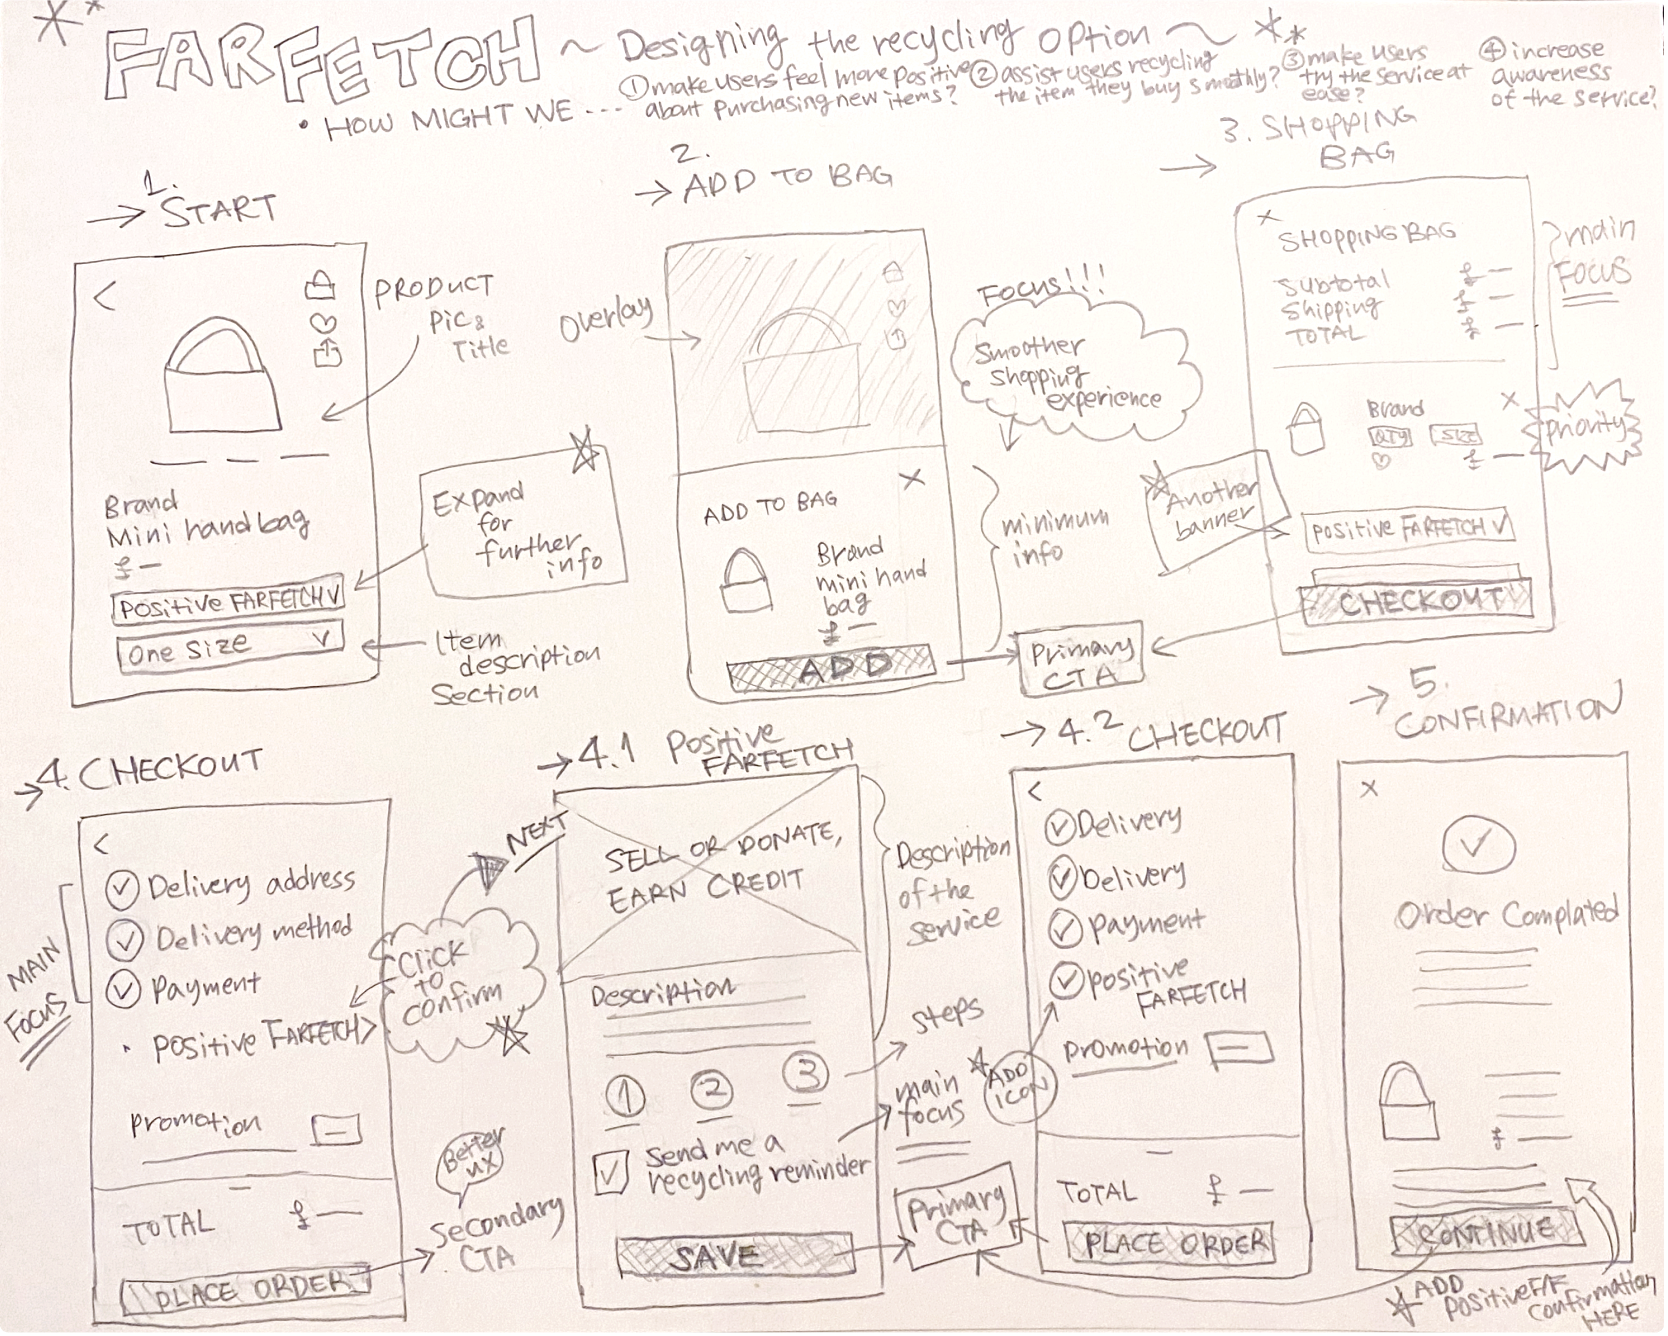 FARFETCH ~ Designing the recycling option ~
• HOW MIGHT WE ---
① make users feel more positive
about purchasing new items?
② assist users recycling
the item they buy smoothly?
③ make users
try the service at
ease?
④ increase
awareness
of the service?
→ 1. START
<
PRODUCT
Pic &
Title
Brand
Mini handbag
£ —
Positive FARFETCH ∨
One Size ∨
Expand
for
further
info
Item
description
Section
→ 2. ADD TO BAG
Overlay
ADD TO BAG
X
Brand
mini hand
bag
£ —
ADD
Focus!!!
Smoother
shopping
experience
minimum
info
Primary
CTA
→ 3. SHOPPING
BAG
X
SHOPPING BAG
Subtotal £ —
Shipping £ —
TOTAL £ —
main
FOCUS
Brand
X
QTY SIZE
£ —
priority
Another
banner
Positive FARFETCH ∨
CHECKOUT
→ 4. CHECKOUT
<
Delivery address
Delivery method
Payment
• Positive FARFETCH >
MAIN
FOCUS
Click
to
confirm
NEXT
Promotion
TOTAL £ —
PLACE ORDER
Better
UX
Secondary
CTA
→ 4.1 Positive
FARFETCH
SELL OR DONATE,
EARN CREDIT
Description
of the
service
Description
1 2 3
steps
Send me a
recycling reminder
main
focus
SAVE
Primary
CTA
→ 4.2 CHECKOUT
<
Delivery
Delivery
Payment
Positive
FARFETCH
ADD
ICON
Promotion
TOTAL £ —
PLACE ORDER
→ 5.
CONFIRMATION
X
Order Complated
£ —
CONTINUE
ADD
Positive F/F
Confirmation
HERE